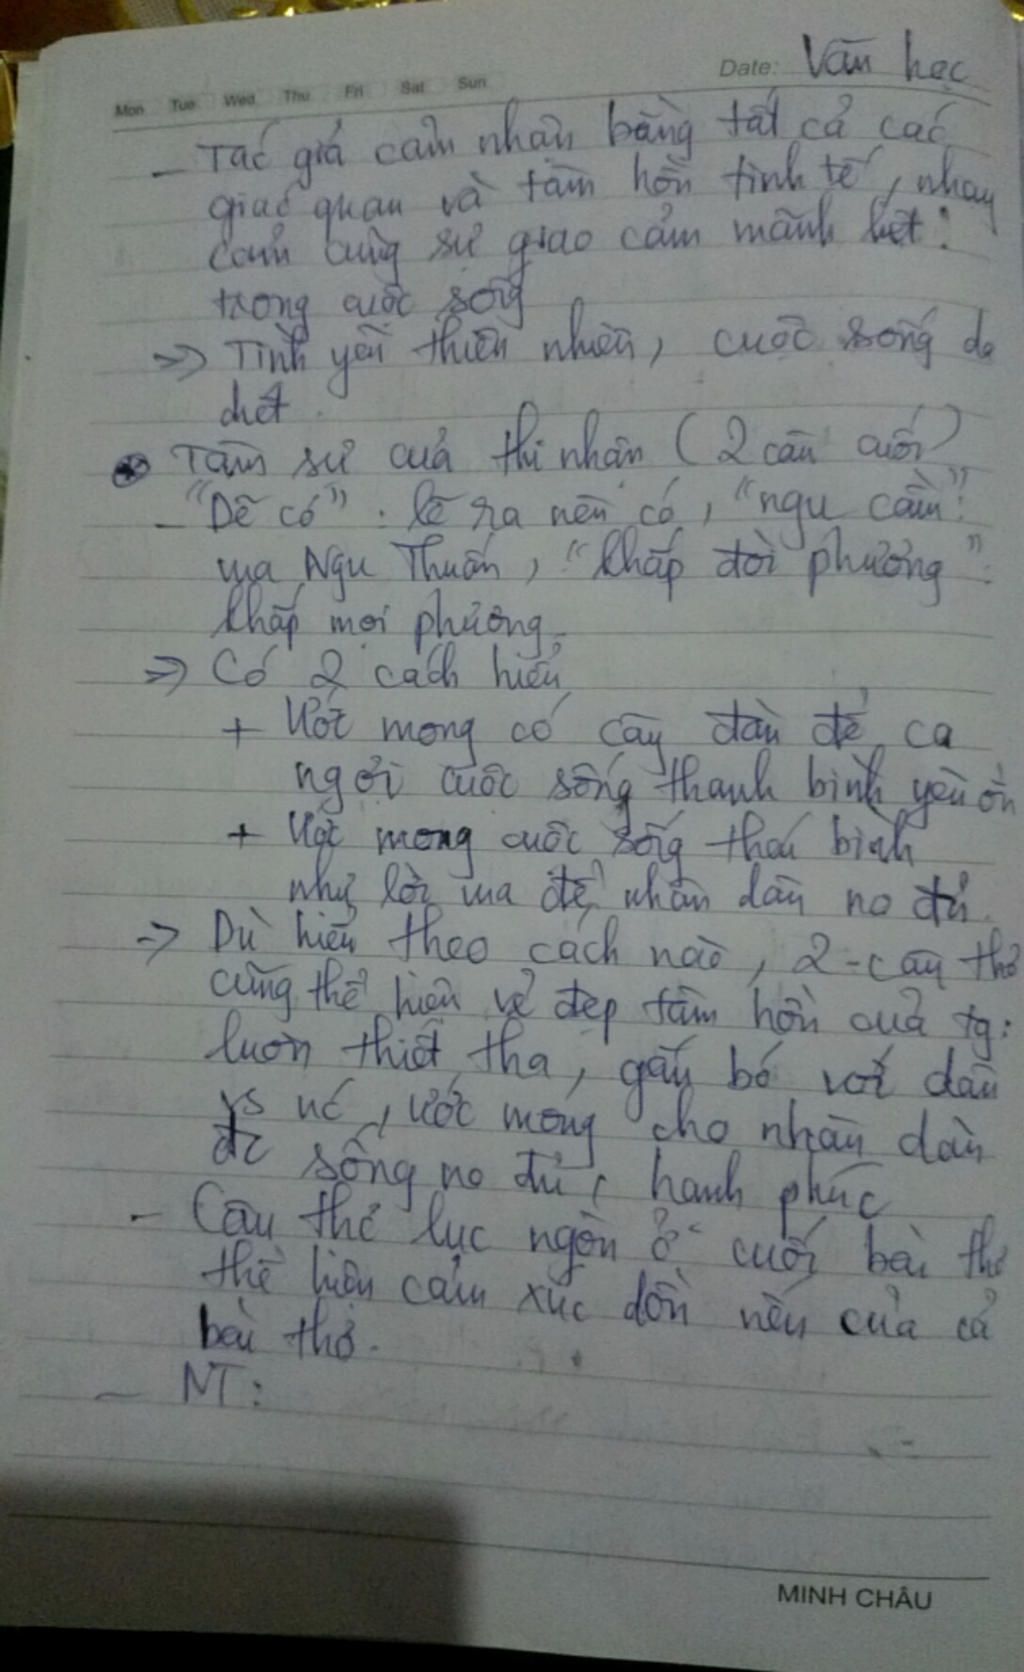 Date: Văn học
Mon Tue Wed Thu Fri Sat Sun
- Tác giả cảm nhận bằng tất cả các
giác quan và tâm hồn tinh tế, nhạy
cảm cùng sự giao cảm mãnh liệt
trong cuộc sống
=> Tình yêu thiên nhiên, cuộc sống da
diết.
Tâm sự của thi nhân (2 câu cuối)
- "Dẽ có": lẽ ra nên có, "ngu cầm":
vua Ngu Thuấn, "khắp đòi phương":
khắp mọi phương.
=> Có 2 cách hiểu
+ Ước mong có cây đàn để ca
ngợi cuộc sống thanh bình yên ổn
+ Ước mong cuộc sống thái bình
như lời vua để nhân dân no đủ.
=> Dù hiểu theo cách nào, 2 câu thơ
cũng thể hiện vẻ đẹp tâm hồn của tg:
luôn thiết tha, gắn bó với dân
vs nc, ước mong cho nhân dân
đc sống no đủ, hạnh phúc
- Câu thơ lục ngôn ở cuối bài thơ
thể hiện cảm xúc dồn nén của cả
bài thơ.
- NT:
MINH CHÂU